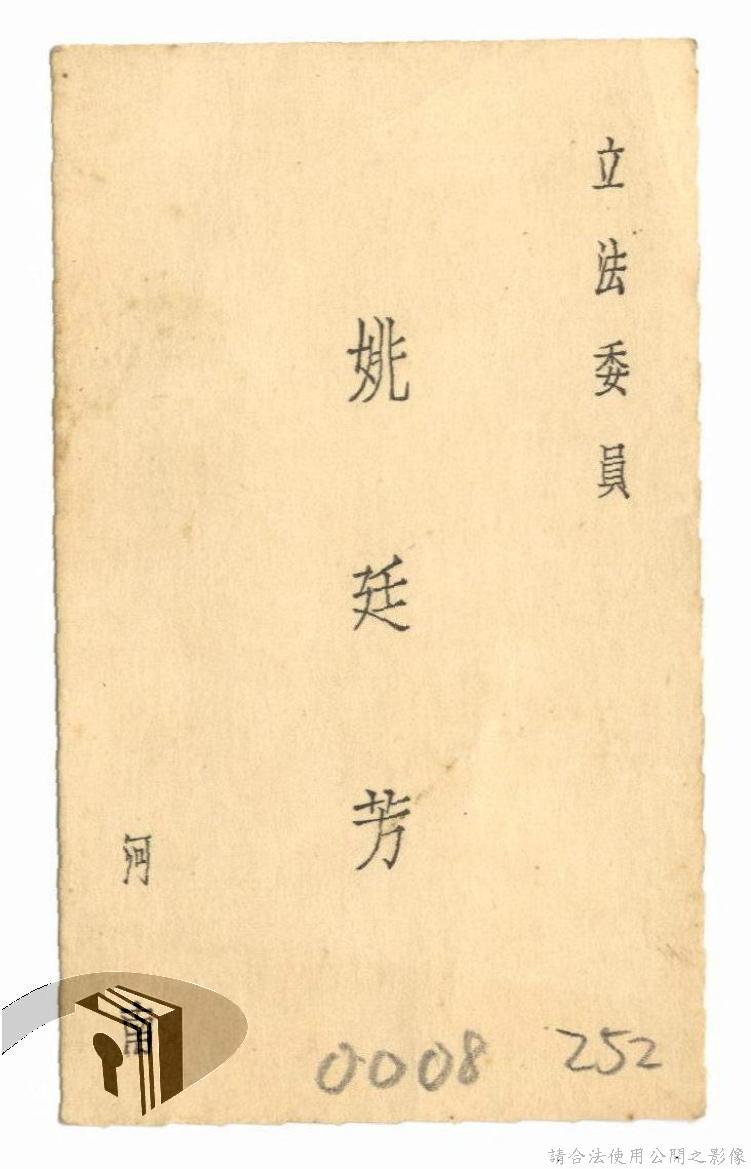 立法委員
姚廷芳
河南
0008 252
請合法使用公開之影像